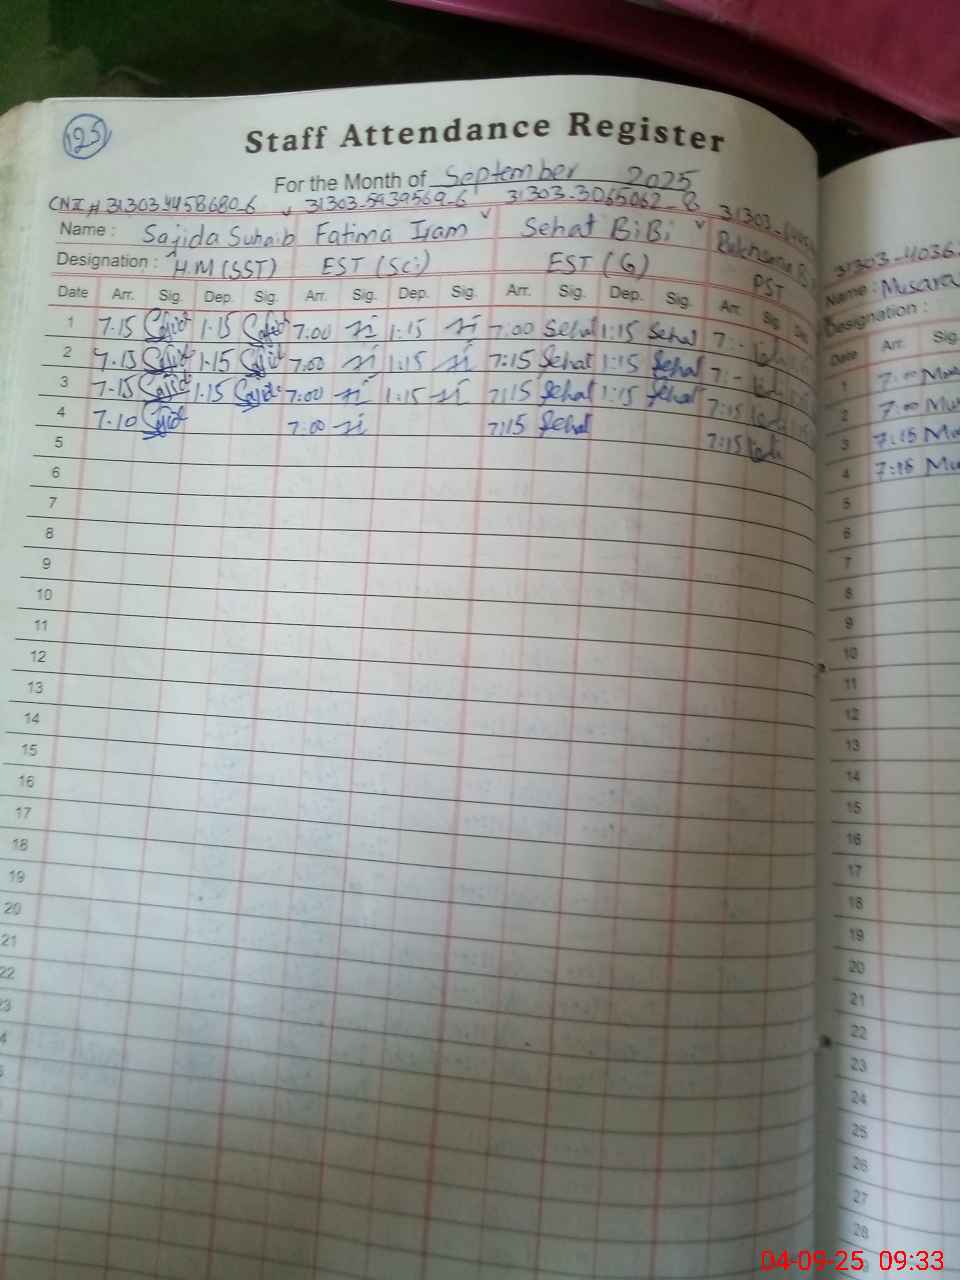 125
Staff Attendance Register
For the Month of September 2025
CNIC # 31303.4458680_6 31303.5939569_6 31303.3065062_8 31303
Name : Sajida Suhaib Fatima Iram Sehat BiBi Rukhsana
Designation : H.M (SST) EST (Sci) EST (G) PST
Date Arr. Sig. Dep. Sig. Arr. Sig. Dep. Sig. Arr. Sig. Dep. Sig. Arr. Sig.
1 7.15 Sajid 1.15 Sajid 7:00 1:15 7:00 Sehat 1:15 Sehat 7:-
2 7.15 Sajid 1.15 Sajid 7:00 1:15 7:15 Sehat 1:15 Sehat 7:-
3 7.15 Sajid 1.15 Sajid 7:00 1:15 7:15 Sehat 1:15 Sehat 7:15
4 7.10 Sajid 7:00 7:15 Sehat 7:15
5
6
7
8
9
10
11
12
13
14
15
16
17
18
19
20
21
22
3
4
31303-4036
Name : Musara
Designation :
Date Arr. Sig
1 7:00
2 7:00 Mu
3 7:15 Mu
4 7:15 Mu
5
6
7
8
9
10
11
12
13
14
15
16
17
18
19
20
21
22
23
24
25
26
27
28
04-09-25 09:33